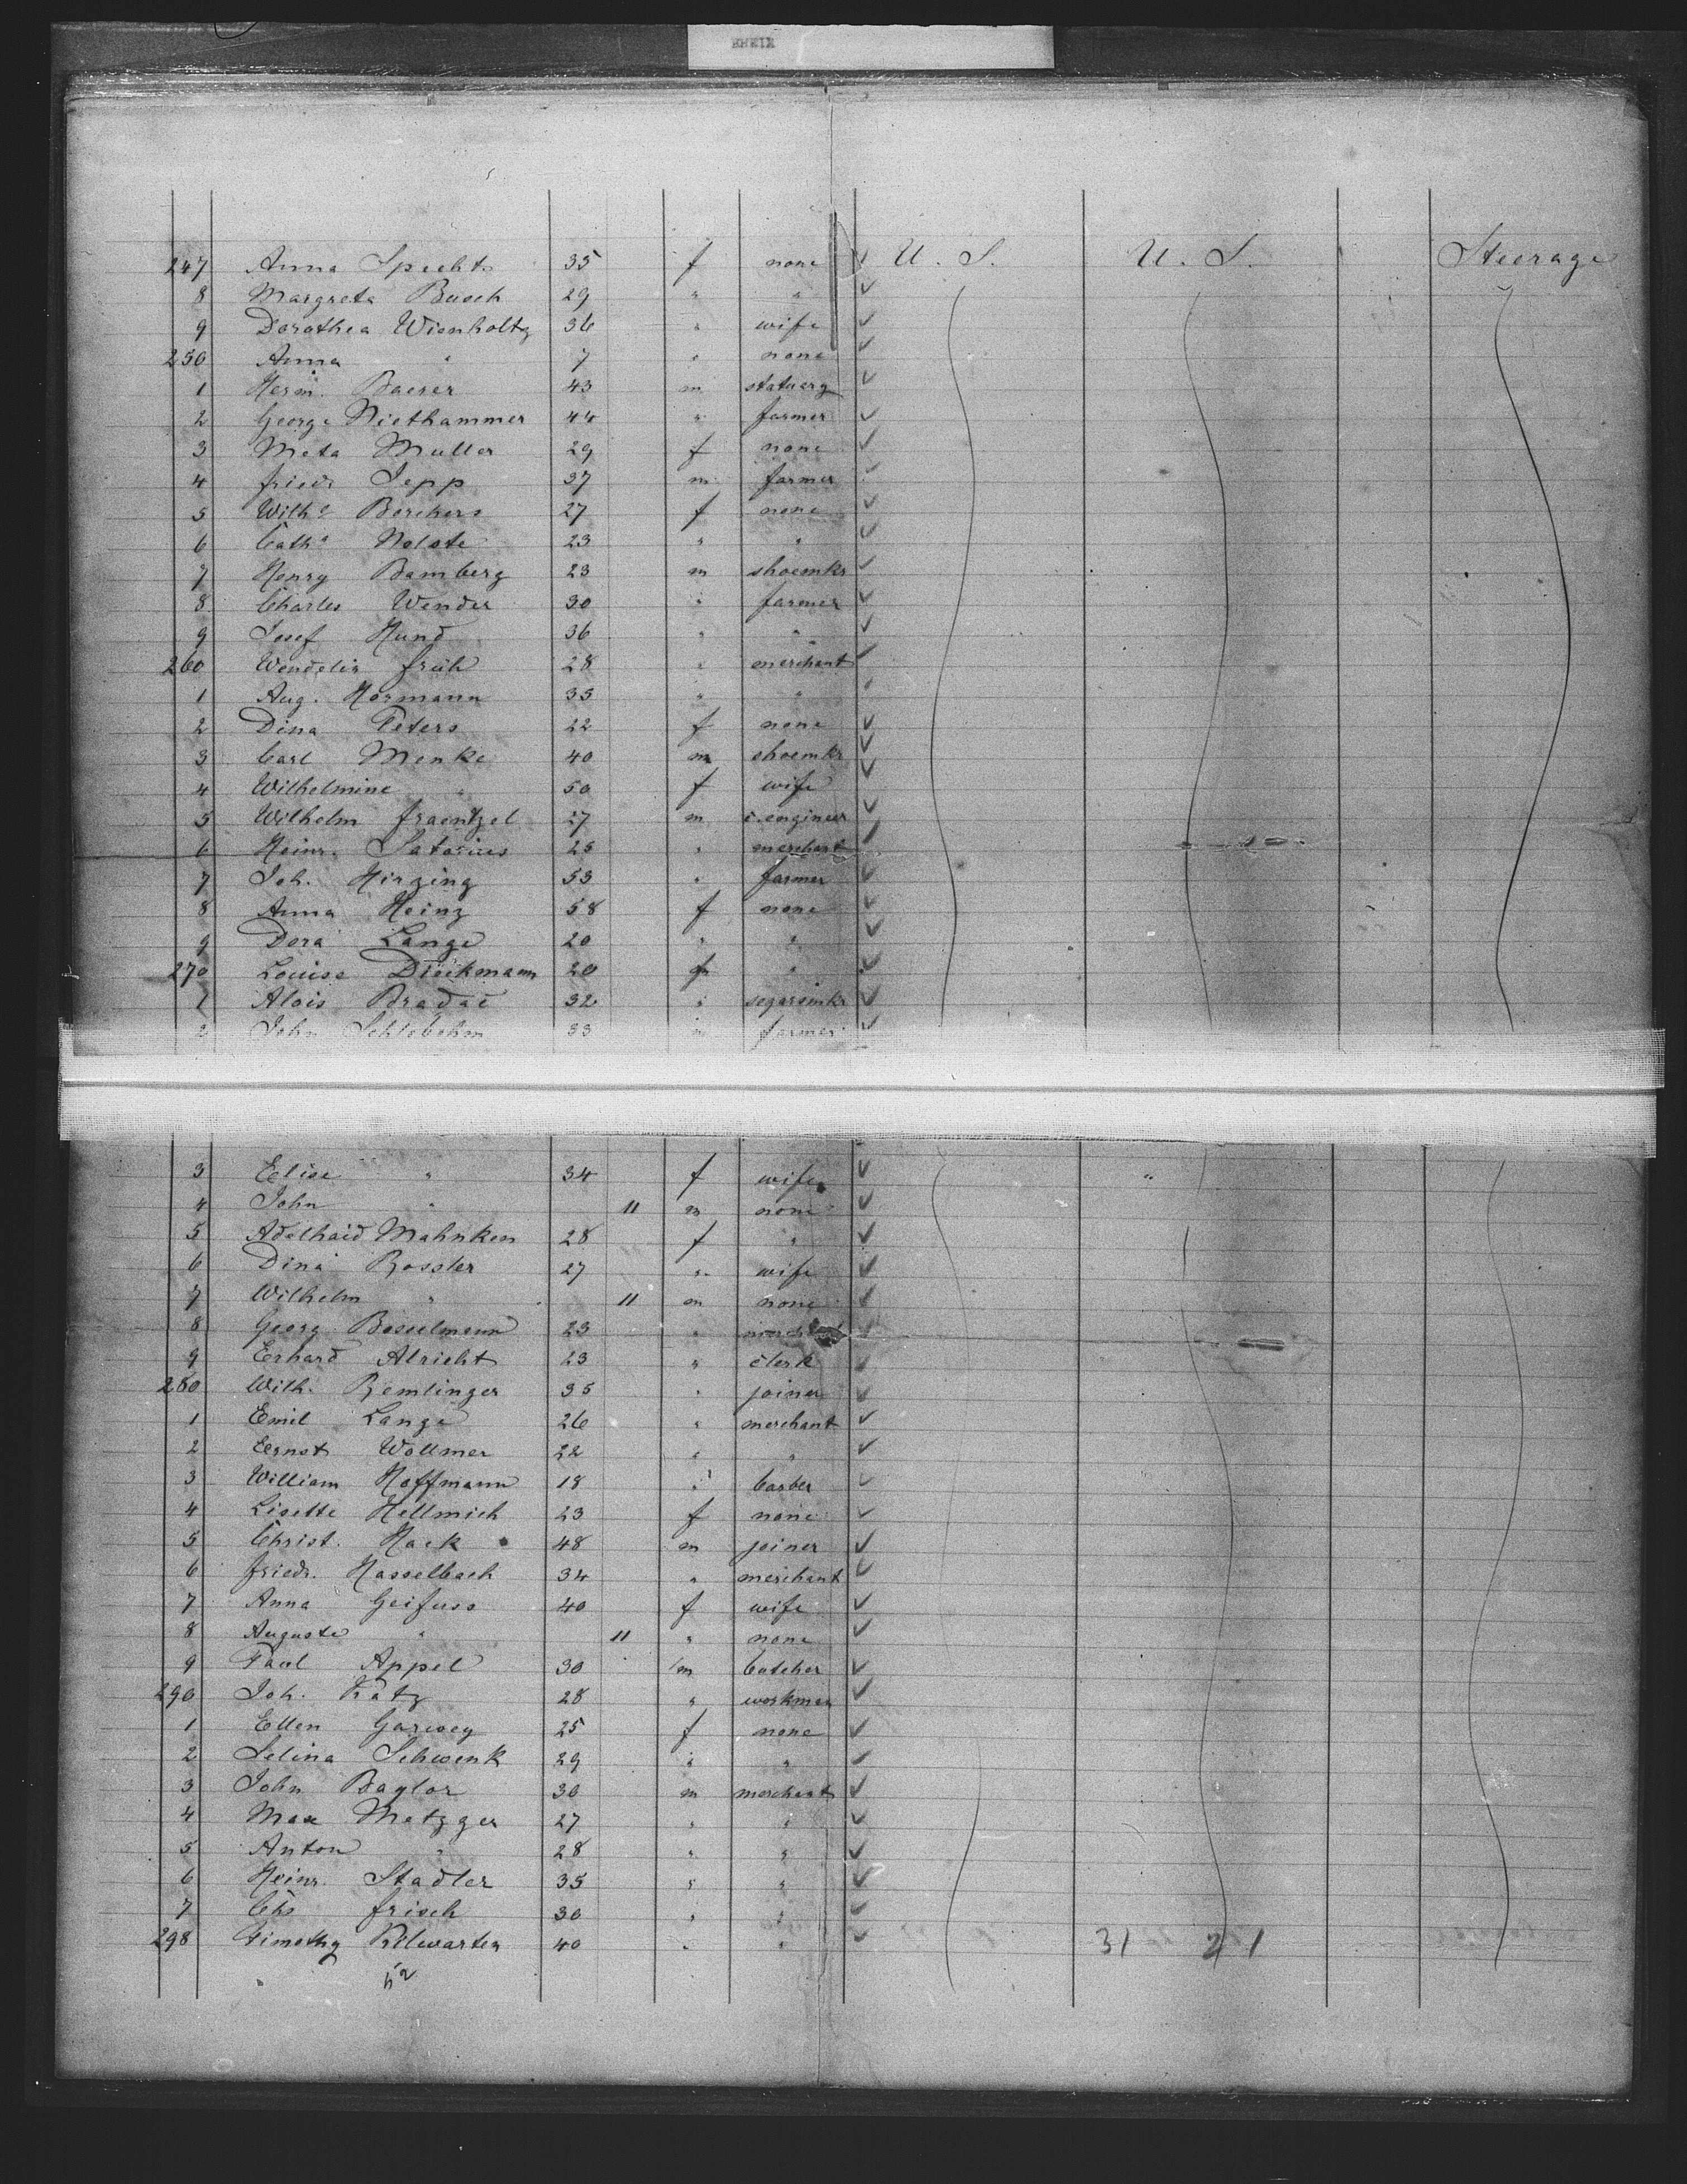 247 Anna Specht 35 f none U. S. U. S. Steerage
8 Margreta Busch 29 " "
9 Dorothea Wienholtz 36 " wife
250 Anna " 7 " none
1 Herm. Baeser 43 m statuary
2 George Niethammer 44 " farmer
3 Meta Muller 29 f none
4 Friedr Sepp 37 m farmer
5 Wilhe Borchers 27 f none
6 Cathe Nolote 23 " "
7 Henry Bamberg 23 m shoemkr
8 Charles Wender 30 " farmer
9 Josef Hund 36 " "
260 Wendelin Früh 28 " merchant
1 Aug. Hormann 35 " "
2 Dina Peters 22 f none
3 Carl Menke 40 m shoemkr
4 Wilhelmine " 50 f wife
5 Wilhelm Fraentzel 27 m c. engineer
6 Heinr. Satorius 25 " merchant
7 Joh. Hirzing 53 " farmer
8 Anna Heinz 58 f none
9 Dora Lange 20 " "
270 Louise Dieckmann 20 "
1 Alois Bradac 32 " segarsmkr
2 John Schlobohm 33 m farmer
3 Elise " 34 f wife "
4 John " 11 m none
5 Adelhaid Mahnken 28 f "
6 Dina Rossler 27 " wife
7 Wilhelm " 11 m none
8 Georg Bosselmann 23 " merchant
9 Erhard Alricht 23 " clerk
280 Wilh. Remlinger 35 " joiner
1 Emil Lange 26 " merchant
2 Ernst Wollmer 22 " "
3 William Hoffmann 18 " barber
4 Lisette Hellmich 23 f none
5 Christ. Hack 48 m joiner
6 Friedr. Hasselbach 34 " merchant
7 Anna Geifuss 40 f wife
8 Auguste " 11 " none
9 Paul Appel 30 m butcher
290 Joh. Katz 28 " workman
1 Ellen Garwey 25 f none
2 Selina Schwenk 29 " "
3 John Baylor 30 m merchant
4 Max Metzger 27 " "
5 Anton " 28 " "
6 Heinr. Stadler 35 " "
7 Chs Frisch 30 " "
298 Timothy Kilwarten 40 " " 31 21
52